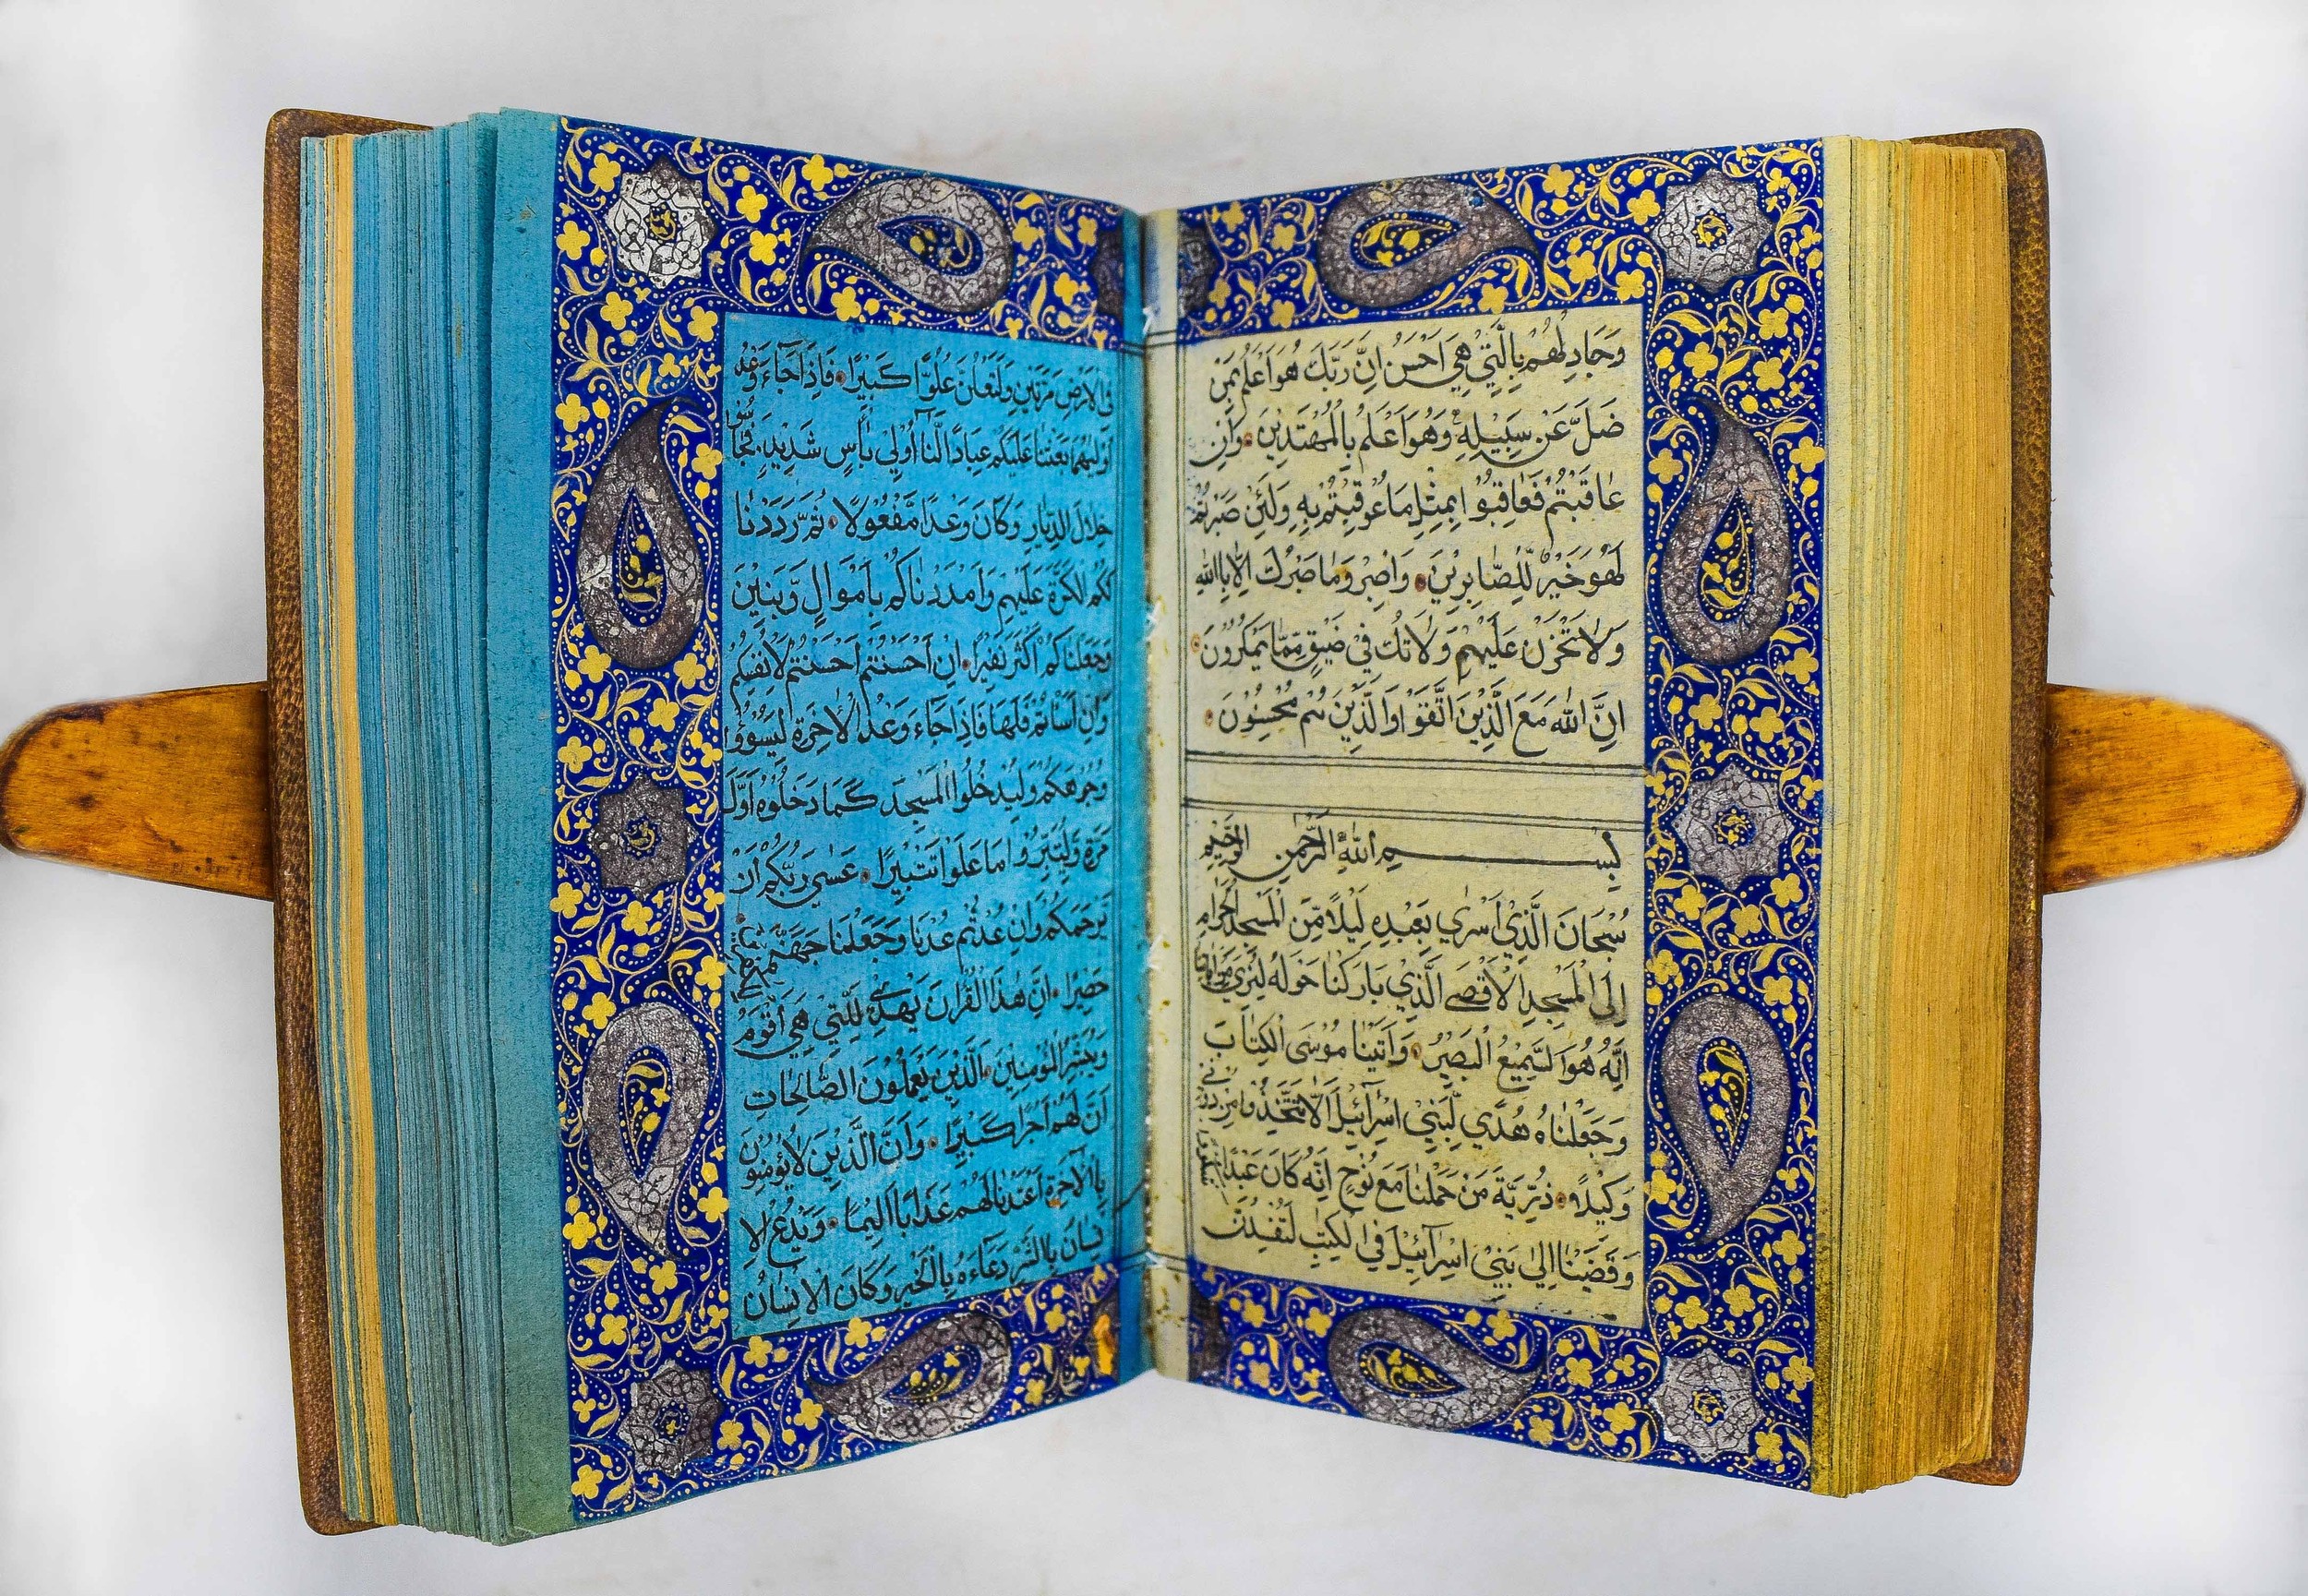 وَجَادِلْهُمْ بِالَّتِيْ هِيَ اَحْسَنُ اِنَّ رَبَّكَ هُوَ اَعْلَمُ بِمَنْ
ضَلَّ عَنْ سَبِيْلِهٖ وَهُوَ اَعْلَمُ بِالْمُهْتَدِيْنَ وَاِنْ
عَاقَبْتُمْ فَعَاقِبُوْا بِمِثْلِ مَا عُوْقِبْتُمْ بِهٖ وَلَئِنْ صَبَرْتُمْ
لَهُوَ خَيْرٌ لِّلصَّابِرِيْنَ وَاصْبِرْ وَمَا صَبْرُكَ اِلَّا بِاللّٰهِ
وَلَا تَحْزَنْ عَلَيْهِمْ وَلَا تَكُ فِيْ ضَيْقٍ مِّمَّا يَمْكُرُوْنَ
اِنَّ اللّٰهَ مَعَ الَّذِيْنَ اتَّقَوْا وَالَّذِيْنَ هُمْ مُّحْسِنُوْنَ
بِسْــــــــمِ اللّٰهِ الرَّحْمٰنِ الرَّحِيْمِ
سُبْحَانَ الَّذِيْ اَسْرٰي بِعَبْدِهٖ لَيْلًا مِّنَ الْمَسْجِدِ الْحَرَامِ
اِلَي الْمَسْجِدِ الْاَقْصَي الَّذِيْ بَارَكْنَا حَوْلَهُ لِنُرِيَهٗ مِنْ اٰيَاتِنَا
اِنَّهُ هُوَ السَّمِيْعُ الْبَصِيْرُ وَاٰتَيْنَا مُوْسَي الْكِتَابَ
وَجَعَلْنَاهُ هُدًي لِّبَنِيْ اِسْرَآئِيْلَ اَلَّا تَتَّخِذُوْا مِنْ دُوْنِيْ
وَكِيْلًا ذُرِّيَّةَ مَنْ حَمَلْنَا مَعَ نُوْحٍ اِنَّهُ كَانَ عَبْدًا شَكُوْرًا
وَقَضَيْنَا اِلٰي بَنِيْ اِسْرَآئِيْلَ فِي الْكِتٰبِ لَتُفْسِدُنَّ
فِي الْاَرْضِ مَرَّتَيْنِ وَلَتَعْلُنَّ عُلُوًّا كَبِيْرًا فَاِذَا جَآءَ وَعْدُ
اُوْلٰيهُمَا بَعَثْنَا عَلَيْكُمْ عِبَادًا لَّنَا اُولِيْ بَاْسٍ شَدِيْدٍ فَجَاسُوْا
خِلَالَ الدِّيَارِ وَكَانَ وَعْدًا مَّفْعُوْلًا ثُمَّ رَدَدْنَا
لَكُمُ الْكَرَّةَ عَلَيْهِمْ وَاَمْدَدْنَاكُمْ بِاَمْوَالٍ وَّبَنِيْنَ
وَجَعَلْنَاكُمْ اَكْثَرَ نَفِيْرًا اِنْ اَحْسَنْتُمْ اَحْسَنْتُمْ لِاَنْفُسِكُمْ
وَاِنْ اَسَاْتُمْ فَلَهَا فَاِذَا جَآءَ وَعْدُ الْاٰخِرَةِ لِيَسُوْٓؤُا
وُجُوْهَكُمْ وَلِيَدْخُلُوا الْمَسْجِدَ كَمَا دَخَلُوْهُ اَوَّلَ
مَرَّةٍ وَّلِيُتَبِّرُوْا مَا عَلَوْا تَتْبِيْرًا عَسٰي رَبُّكُمْ اَنْ
يَّرْحَمَكُمْ وَاِنْ عُدْتُّمْ عُدْنَا وَجَعَلْنَا جَهَنَّمَ لِلْكَافِرِيْنَ
حَصِيْرًا اِنَّ هٰذَا الْقُرْاٰنَ يَهْدِيْ لِلَّتِيْ هِيَ اَقْوَمُ
وَيُبَشِّرُ الْمُؤْمِنِيْنَ الَّذِيْنَ يَعْمَلُوْنَ الصَّالِحَاتِ
اَنَّ لَهُمْ اَجْرًا كَبِيْرًا وَاَنَّ الَّذِيْنَ لَا يُؤْمِنُوْنَ
بِالْاٰخِرَةِ اَعْتَدْنَا لَهُمْ عَذَابًا اَلِيْمًا وَيَدْعُ الْاِ
نْسَانُ بِالشَّرِّ دُعَآءَهُ بِالْخَيْرِ وَكَانَ الْاِنْسَانُ